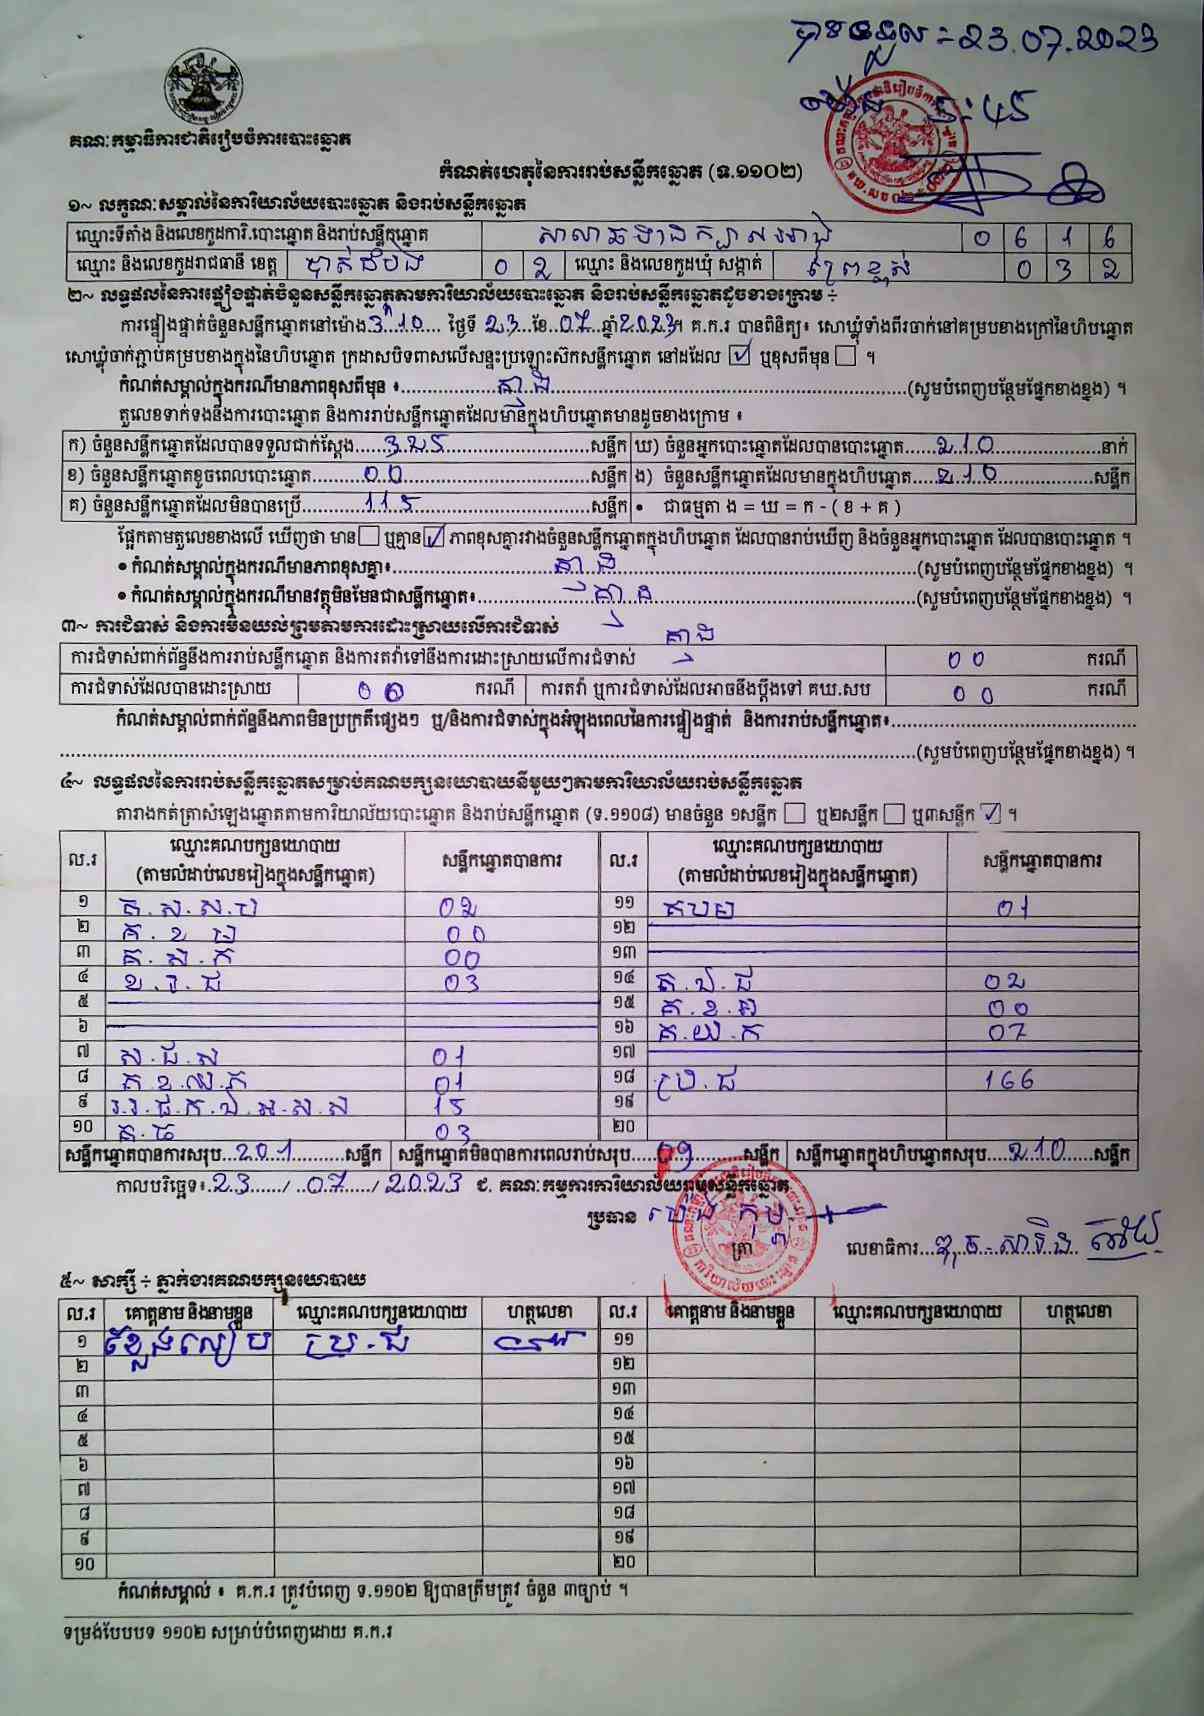 បានទទួល ÷ 23.07.2023
ម៉ោង ៦:៤៥
គណៈកម្មាធិការជាតិរៀបចំការបោះឆ្នោត
កំណត់ហេតុនៃការរាប់សន្លឹកឆ្នោត (ទ.១១០២)
១~ លក្ខណៈសម្គាល់នៃការិយាល័យបោះឆ្នោត និងរាប់សន្លឹកឆ្នោត
ឈ្មោះទីតាំង និងលេខកូដការិ.បោះឆ្នោត និងរាប់សន្លឹកឆ្នោត សាលាឆទានក្បាល 0 6 1 6
ឈ្មោះ និងលេខកូដរាជធានី ខេត្ត បាត់ដំបង 0 2 ឈ្មោះ និងលេខកូដឃុំ សង្កាត់ ព្រៃខ្ពស់ 0 3 2
២~ លទ្ធផលនៃការផ្ទៀងផ្ទាត់ចំនួនសន្លឹកឆ្នោតតាមការិយាល័យបោះឆ្នោត និងរាប់សន្លឹកឆ្នោតដូចខាងក្រោម ÷
ការផ្ទៀងផ្ទាត់ចំនួនសន្លឹកឆ្នោតនៅម៉ោង 3:10 ថ្ងៃទី 23 ខែ 07 ឆ្នាំ 2023។ គ.ក.រ បានពិនិត្យ៖ សោឃ្លុំទាំងពីរចាក់នៅគម្របខាងក្រៅនៃហិបឆ្នោត
សោឃ្លុំចាក់ភ្ជាប់គម្របខាងក្នុងនៃហិបឆ្នោត ក្រដាសបិទពាសលើសន្ទះប្រឡោះស៊កសន្លឹកឆ្នោត នៅដដែល ☑ ឬខុសពីមុន ☐ ។
កំណត់សម្គាល់ក្នុងករណីមានភាពខុសពីមុន ៖ គ្មាន (សូមបំពេញបន្ថែមផ្នែកខាងខ្នង) ។
តួលេខទាក់ទងនឹងការបោះឆ្នោត និងការរាប់សន្លឹកឆ្នោតដែលមាននៅក្នុងហិបឆ្នោតមានដូចខាងក្រោម ៖
ក) ចំនួនសន្លឹកឆ្នោតដែលបានទទួលជាក់ស្តែង 325 សន្លឹក ឃ) ចំនួនអ្នកបោះឆ្នោតដែលបានបោះឆ្នោត 210 នាក់
ខ) ចំនួនសន្លឹកឆ្នោតខូចពេលបោះឆ្នោត 00 សន្លឹក ង) ចំនួនសន្លឹកឆ្នោតដែលមានក្នុងហិបឆ្នោត 210 សន្លឹក
គ) ចំនួនសន្លឹកឆ្នោតដែលមិនបានប្រើ 115 សន្លឹក • ជាធម្មតា ង = ឃ = ក - ( ខ + គ )
ផ្អែកតាមតួលេខខាងលើ ឃើញថា មាន ☐ ឬគ្មាន ☑ ភាពខុសគ្នារវាងចំនួនសន្លឹកឆ្នោតក្នុងហិបឆ្នោត ដែលបានរាប់ឃើញ និងចំនួនអ្នកបោះឆ្នោត ដែលបានបោះឆ្នោត ។
• កំណត់សម្គាល់ក្នុងករណីមានភាពខុសគ្នា៖ គ្មាន (សូមបំពេញបន្ថែមផ្នែកខាងខ្នង) ។
• កំណត់សម្គាល់ក្នុងករណីមានវត្ថុមិនមែនជាសន្លឹកឆ្នោត៖ គ្មាន (សូមបំពេញបន្ថែមផ្នែកខាងខ្នង) ។
៣~ ការជំទាស់ និងការមិនយល់ព្រមតាមការដោះស្រាយលើការជំទាស់ គ្មាន
ការជំទាស់ពាក់ព័ន្ធនឹងការរាប់សន្លឹកឆ្នោត និងការតវ៉ាទៅនឹងការដោះស្រាយលើការជំទាស់ 00 ករណី
ការជំទាស់ដែលបានដោះស្រាយ 00 ករណី ការតវ៉ា ឬការជំទាស់ដែលអាចនឹងប្តឹងទៅ គឃ.សប 00 ករណី
កំណត់សម្គាល់ពាក់ព័ន្ធនឹងភាពមិនប្រក្រតីផ្សេងៗ ឬ/និងការជំទាស់ក្នុងអំឡុងពេលនៃការផ្ទៀងផ្ទាត់ និងការរាប់សន្លឹកឆ្នោត៖
(សូមបំពេញបន្ថែមផ្នែកខាងខ្នង) ។
៤~ លទ្ធផលនៃការរាប់សន្លឹកឆ្នោតសម្រាប់គណបក្សនយោបាយនីមួយៗតាមការិយាល័យរាប់សន្លឹកឆ្នោត
តារាងកត់ត្រាសំឡេងឆ្នោតតាមការិយាល័យបោះឆ្នោត និងរាប់សន្លឹកឆ្នោត (ទ.១១០៨) មានចំនួន ១សន្លឹក ☐ ឬ២សន្លឹក ☐ ឬ៣សន្លឹក ☑ ។
ល.រ ឈ្មោះគណបក្សនយោបាយ (តាមលំដាប់លេខរៀងក្នុងសន្លឹកឆ្នោត) សន្លឹកឆ្នោតបានការ ល.រ ឈ្មោះគណបក្សនយោបាយ (តាមលំដាប់លេខរៀងក្នុងសន្លឹកឆ្នោត) សន្លឹកឆ្នោតបានការ
១ គ.ស.ស.ប 02 ១១ គបផ 01
២ គ.ខ.ធ 00 ១២
៣ គ.ស.ក 00 ១៣
៤ ខ.រ.ជ 03 ១៤ គ.ប.ជ 02
៥ ១៥ គ.ខ.អ 00
៦ ១៦ គ.យ.ក 07
៧ ស.ជ.ស 01 ១៧
៨ គ.ខ.ល.ក 01 ១៨ ប្រ.ជ 166
៩ រ.រ.ជ.ក.ឯ.អ.ស.ស 15 ១៩
១០ គ.ធ 03 ២០
សន្លឹកឆ្នោតបានការសរុប 201 សន្លឹក សន្លឹកឆ្នោតមិនបានការពេលរាប់សរុប 09 សន្លឹក សន្លឹកឆ្នោតក្នុងហិបឆ្នោតសរុប 210 សន្លឹក
កាលបរិច្ឆេទ៖ 23 / 07 / 2023 ជ. គណៈកម្មការការិយាល័យរាប់សន្លឹកឆ្នោត
ប្រធាន
ត្រា លេខាធិការ
៥~ សាក្សី ÷ ភ្នាក់ងារគណបក្សនយោបាយ
ល.រ គោត្តនាម និងនាមខ្លួន ឈ្មោះគណបក្សនយោបាយ ហត្ថលេខា ល.រ គោត្តនាម និងនាមខ្លួន ឈ្មោះគណបក្សនយោបាយ ហត្ថលេខា
១ ខ្លែងលៀប ប្រ.ជ ១១
២ ១២
៣ ១៣
៤ ១៤
៥ ១៥
៦ ១៦
៧ ១៧
៨ ១៨
៩ ១៩
១០ ២០
កំណត់សម្គាល់ ៖ គ.ក.រ ត្រូវបំពេញ ទ.១១០២ ឱ្យបានត្រឹមត្រូវ ចំនួន ៣ច្បាប់ ។
ទម្រង់បែបបទ ១១០២ សម្រាប់បំពេញដោយ គ.ក.រ